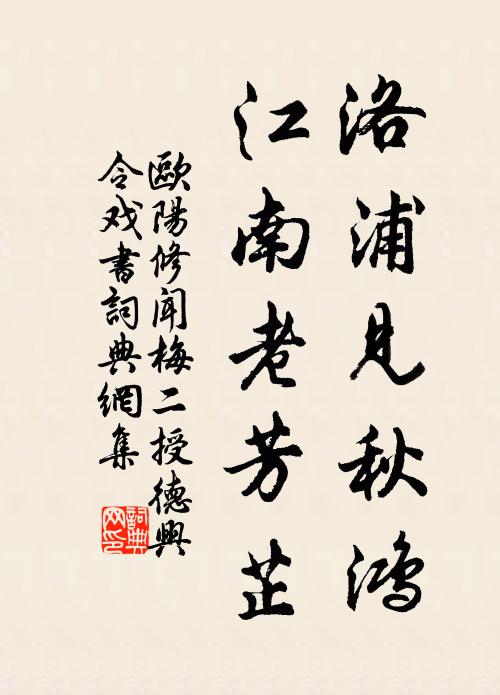 洛浦见秋鸿
江南老芳芷
歐陽修闻梅二授德興
令戏書詞典網集
詞典
网印